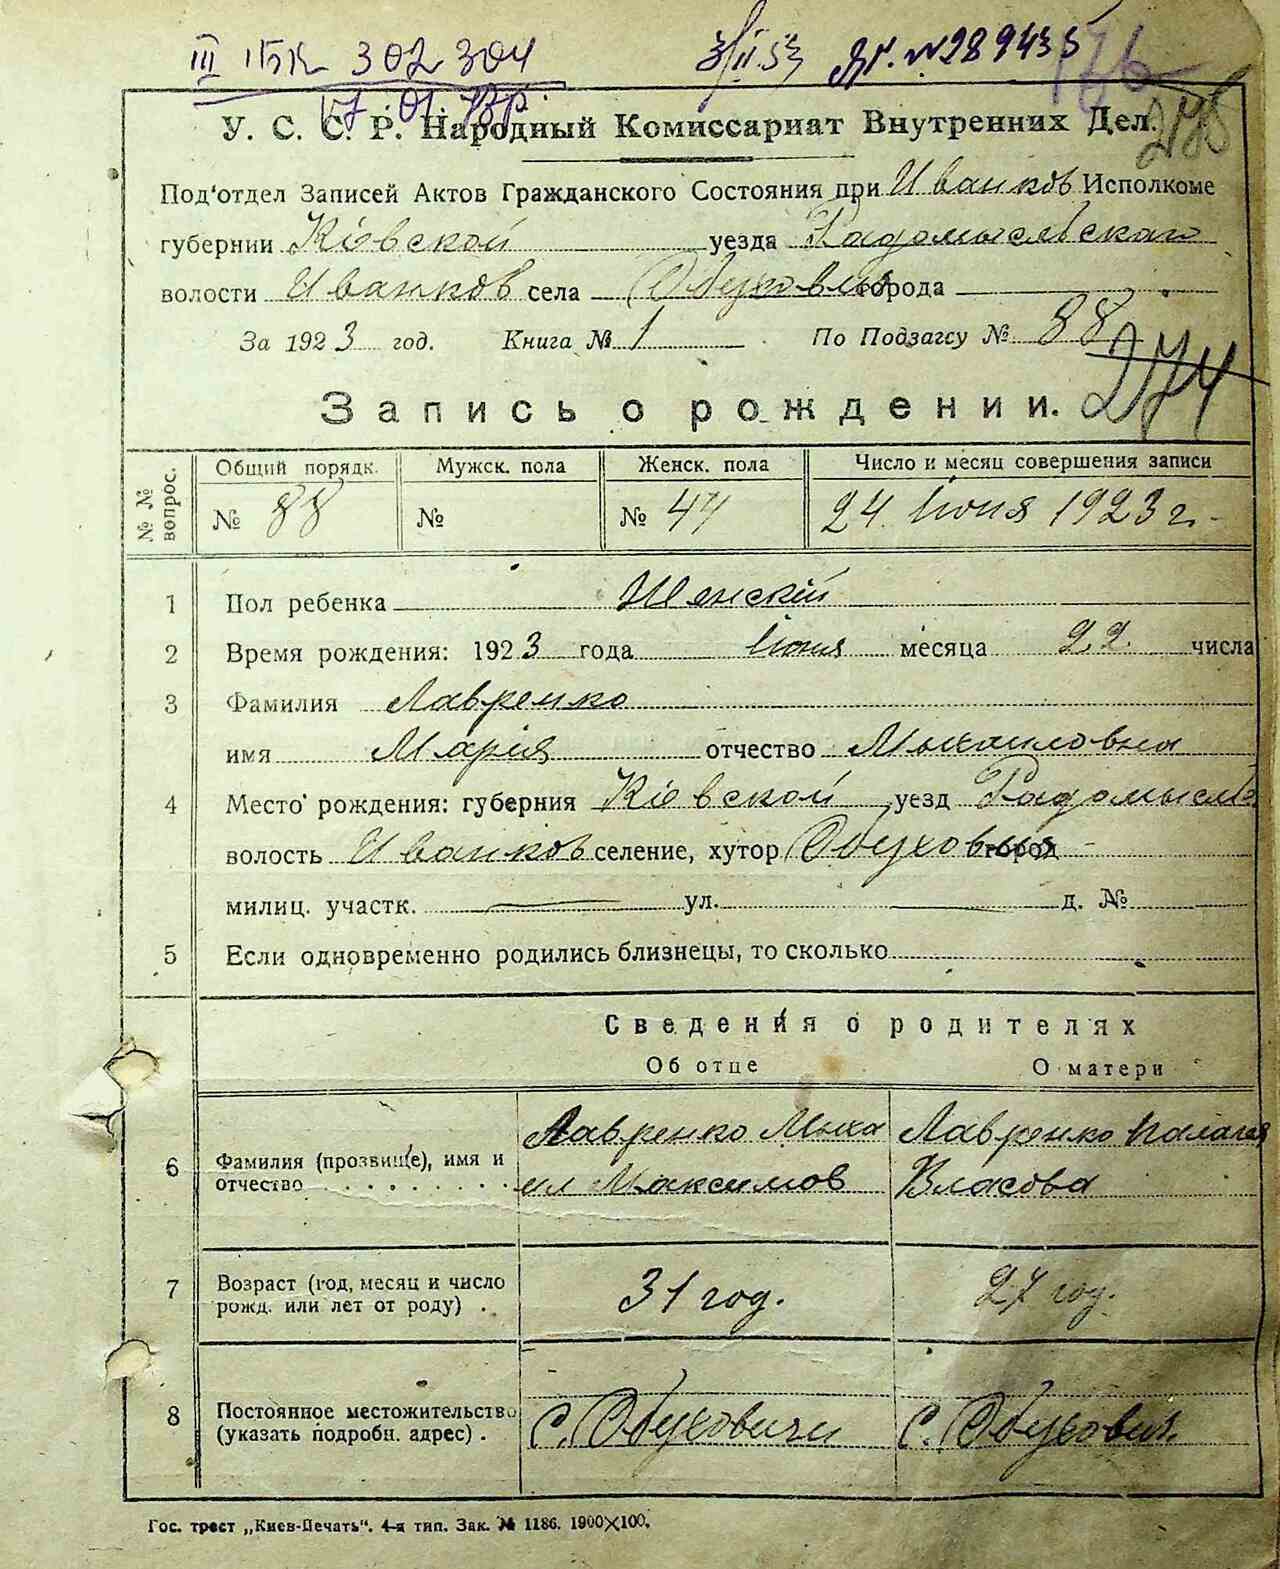 III 302 304
№ 289435
У. С. С. Р. Народный Комиссариат Внутренних Дел.
Под'отдел Записей Актов Гражданского Состояния при Иванков Исполкоме
губернии Кіевской уезда Радомысльскаго
волости Иванков села города
За 1923 год. Книга № 1 По Подзагсу № 88
274
Запись о рождении.
№ № вопрос. Общий порядк. Мужск. пола Женск. пола Число и месяц совершения записи
№ 88 № № 44 24 Іюня 1923 г.
1 Пол ребенка Женскій
2 Время рождения: 1923 года Іюня месяца 22 числа
3 Фамилия Лавренко
имя Марія отчество Михаиловна
4 Место рождения: губерния Кіевской уезд Радомысль
волость Иванков селение, хутор город
милиц. участк. ул. д. №
5 Если одновременно родились близнецы, то сколько
Сведения о родителях
Об отце О матери
6 Фамилия (прозвище), имя и отчество
Лавренко Миха
ил Максимов
Лавренко Палагея
Власова
7 Возраст (год, месяц и число
рожд. или лет от роду) .
31 год. 27 год.
8 Постоянное местожительство
(указать подробн. адрес) .
с. Обуховичи с. Обухович.
Гос. трест „Киев-Печать". 4-я тип. Зак. № 1186. 1900×100.